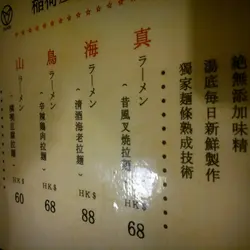 稻荷
絕無添加味精
湯底每日新鮮製作
獨家麵條熟成技術
真
ラーメン
昔風叉焼拉麵
HK$
68
海
ラーメン
清酒海老拉麵
HK$
88
鳥
ラーメン
辛辣鶏肉拉麵
HK$
68
山
ラーメン
HK$
60